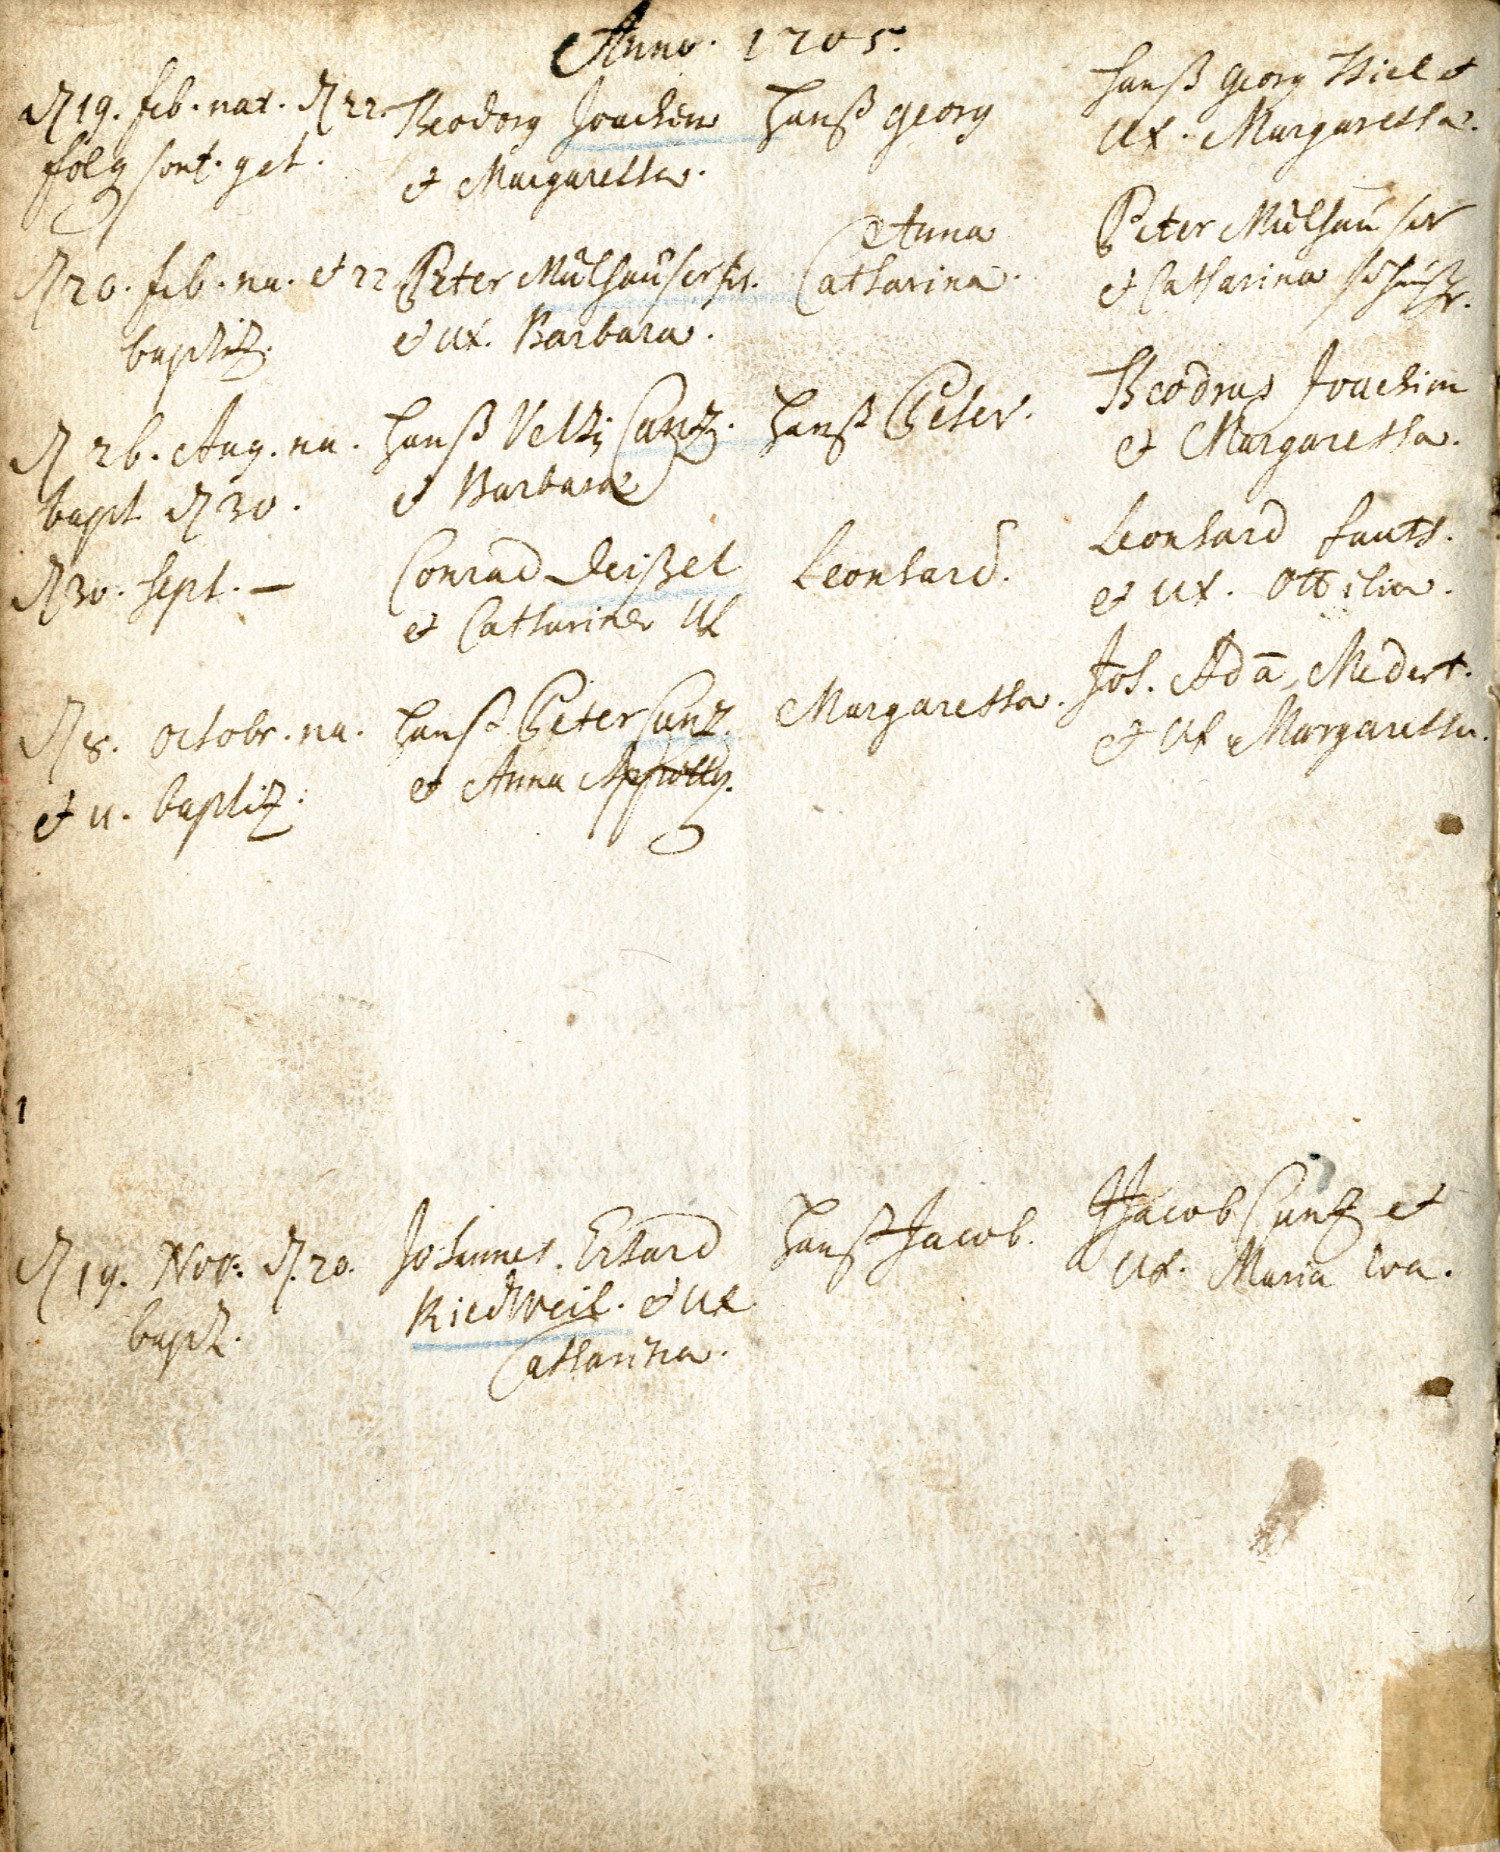 Anno. 1705.
19. feb. nat. 22.
folg sont. get.
Theodorg Joachim
et Margaretha.
Hanß Georg
Hanß Georg Thiel et
ux. Margaretha.
20. feb. na. et 22
baptiz.
Peter Mülhauser
et ux. Barbara.
Anna
Catharina.
Peter Mülhauser
et Catharina
26. Aug. na.
bapt 30.
Hanß Velti Cuntz.
et Barbara
Hanß Peter.
Theodrus Joachim
et Margaretha.
30. Sept. —
Conrad Deißel
et Catharina ux
Leonhard.
Leonhard fauth.
et ux. Ottilia.
8. Octobr. na.
et 11. baptiz.
Hanß Peter Cuntz.
et Anna Appolly.
Margaretha.
Joh. Adā Medert.
et ux Margaretha.
1
19. Nov. 20.
bapt.
Johannes. Erhard
Riedweil. et ux
Catharina.
Hanß Jacob.
Jacob Cuntz et
ux. Maria Eva.